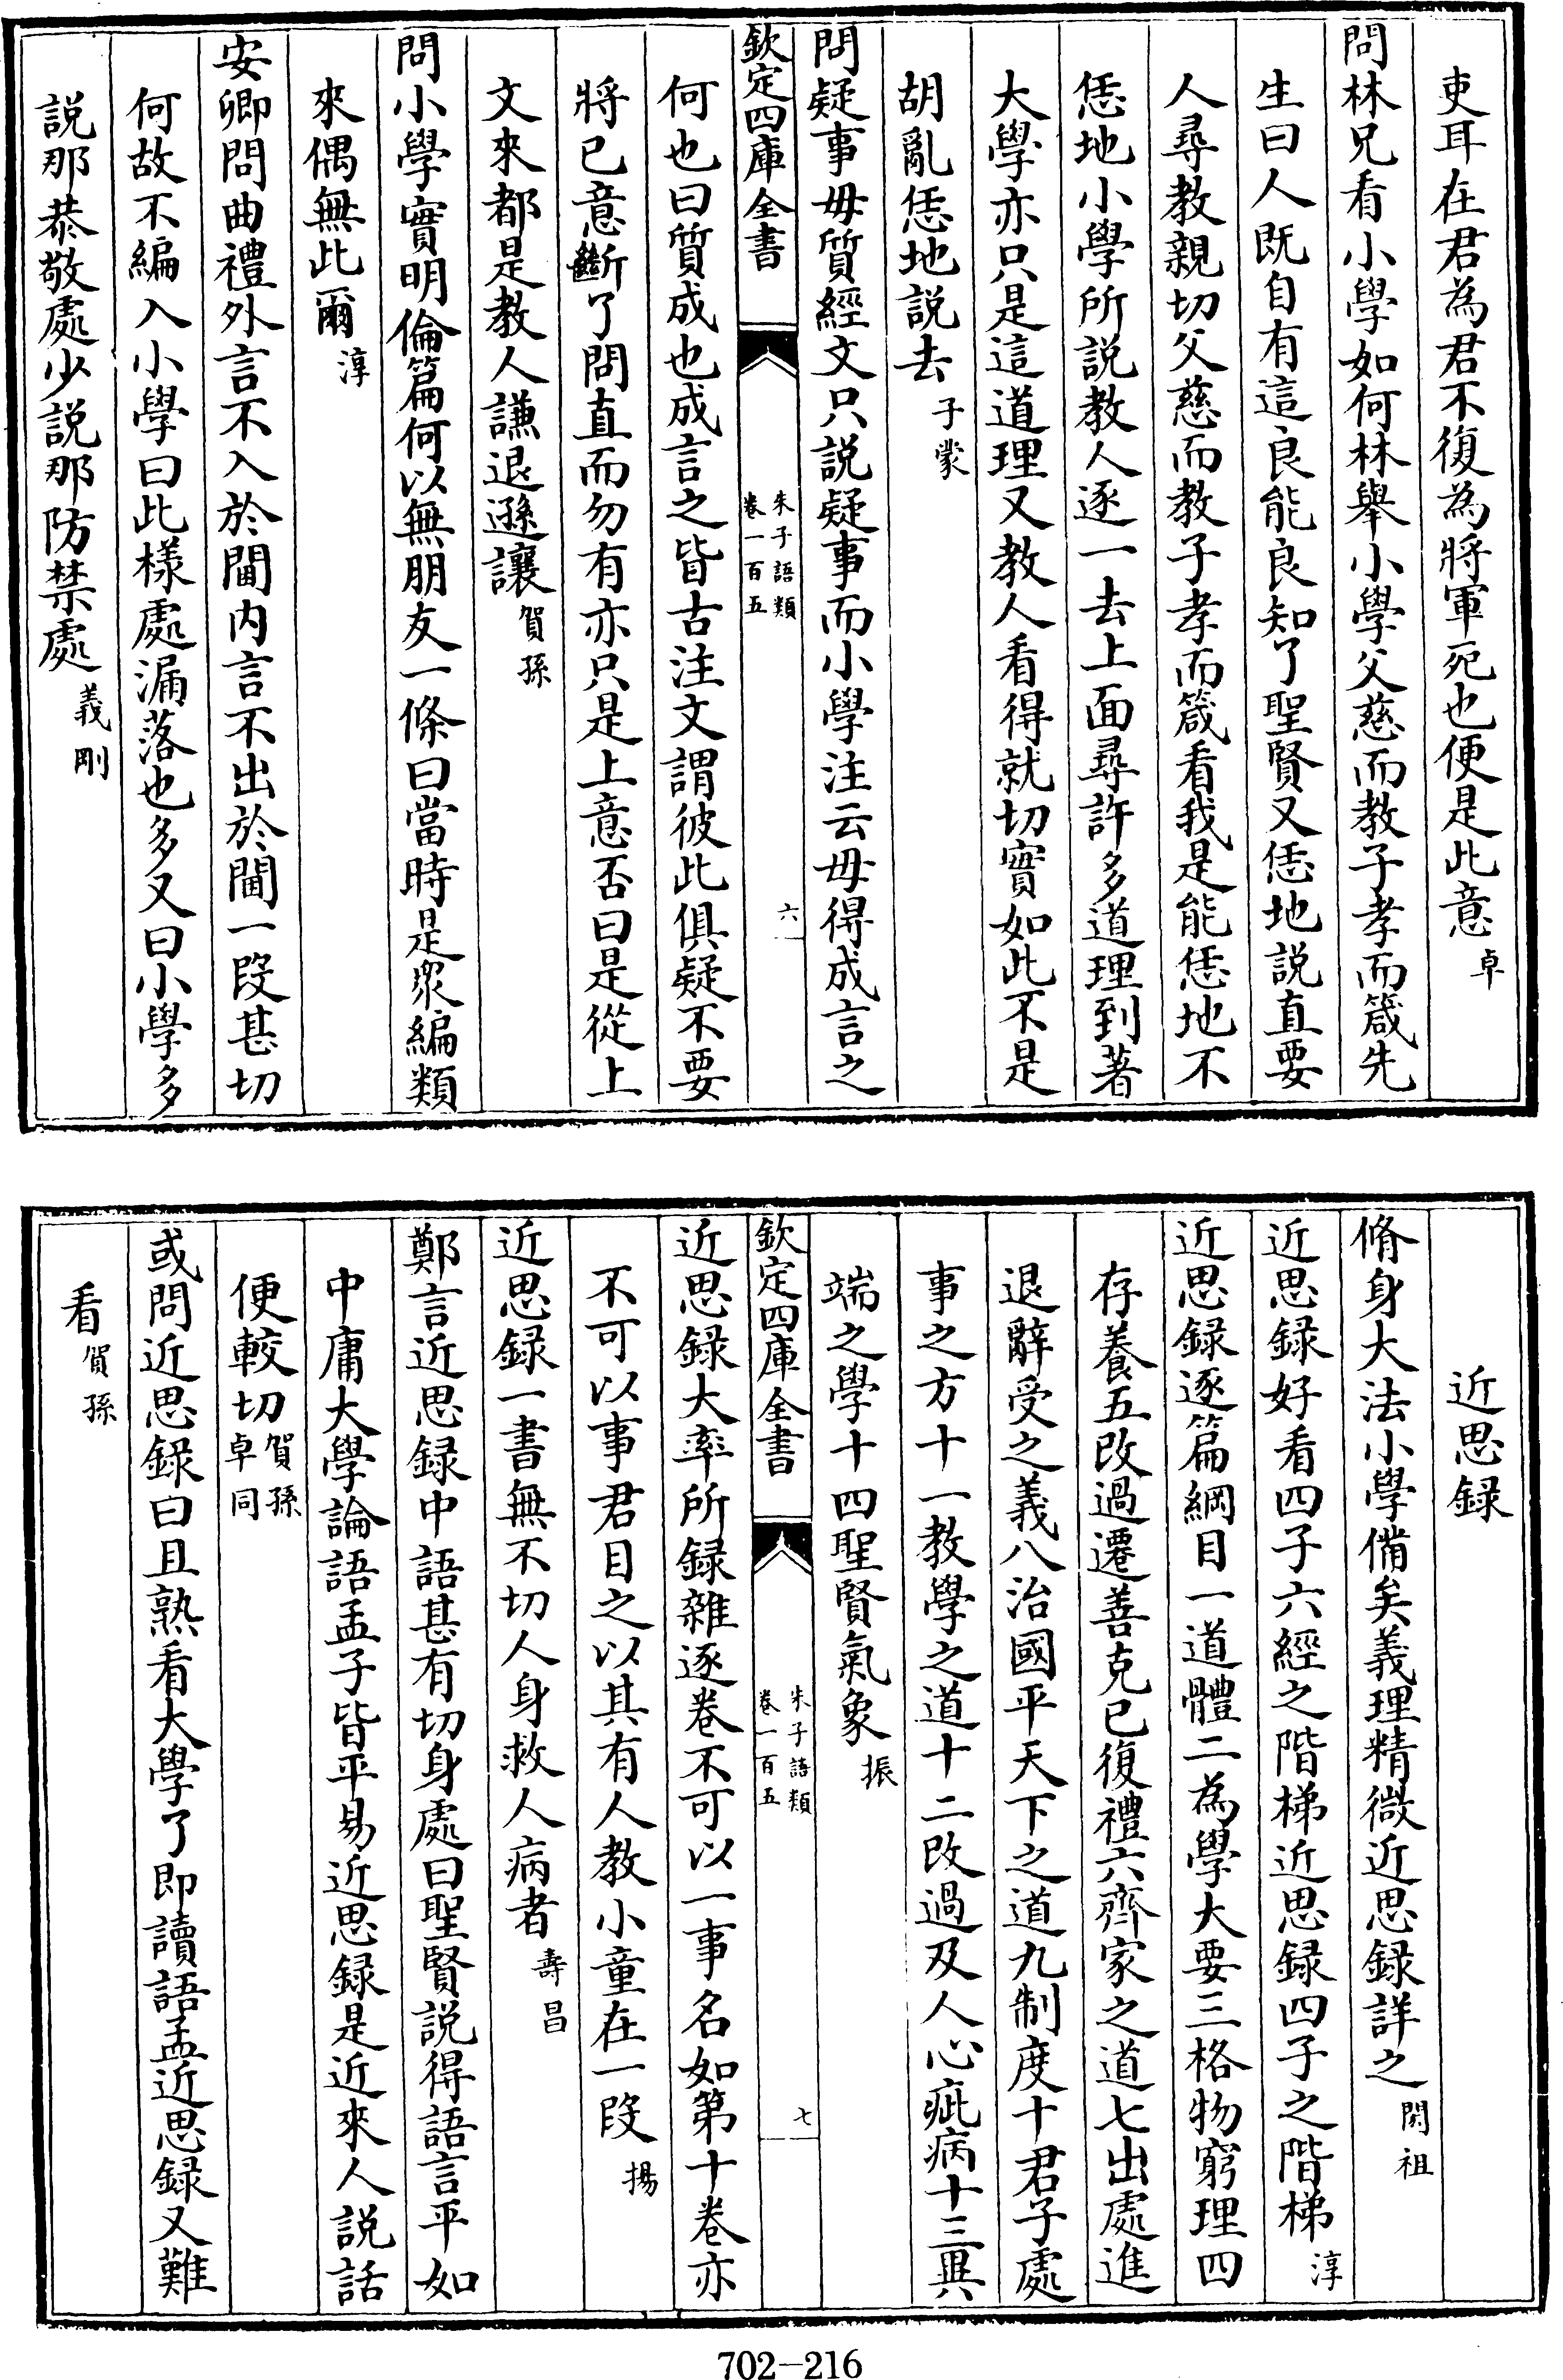 吏耳在君為君不復為將軍死也便是此意卓
問林兄看小學如何林舉小學父慈而教子孝而箴先
生曰人既自有這良能良知了聖賢又恁地説直要
人尋教親切父慈而教子孝而箴看我是能恁地不
恁地小學所説教人逐一去上面尋許多道理到著
大學亦只是這道理又教人看得就切實如此不是
胡亂恁地説去子蒙
問疑事毋質經文只説疑事而小學注云毋得成言之
欽定四庫全書
朱子語類
卷一百五
六
何也曰質成也成言之皆古注文謂彼此俱疑不要
將已意斷了問直而勿有亦只是上意否曰是從上
文來都是教人謙退遜讓賀孫
問小學實明倫篇何以無朋友一條曰當時是衆編類
來偶無此爾淳
安卿問曲禮外言不入於閫内言不出於閫一段甚切
何故不編入小學曰此樣處漏落也多又曰小學多
説那恭敬處少説那防禁處義剛
近思録
脩身大法小學備矣義理精微近思録詳之閎祖
近思録好看四子六經之階梯近思録四子之階梯淳
近思録逐篇綱目一道體二為學大要三格物窮理四
存養五改過遷善克已復禮六齊家之道七出處進
退辭受之義八治國平天下之道九制度十君子處
事之方十一教學之道十二改過及人心疵病十三異
端之學十四聖賢氣象振
欽定四庫全書
朱子語類
卷一百五
七
近思録大率所録雜逐卷不可以一事名如第十卷亦
不可以事君目之以其有人教小童在一段揚
近思録一書無不切人身救人病者壽昌
鄭言近思録中語甚有切身處曰聖賢説得語言平如
中庸大學論語孟子皆平易近思録是近來人説話
便較切賀孫卓同
或問近思録曰且熟看大學了即讀語孟近思録又難
看賀孫
702-216